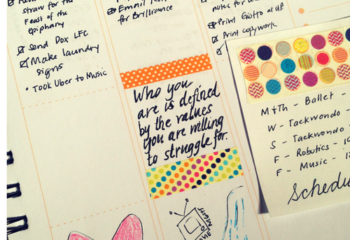 straw for the
Feast of the
Epiphany
Send Dox LFC
Make laundry
signs
• Took Uber to Music
Email
for Brilliance
notes for
Print Giotto
Print copywork
Who you
are is defined
by the values
you are willing
to struggle for.
M+Th - Ballet -
W - Taekwondo -
S - Taekwondo
F - Robotics -
F - Music -
Schedu